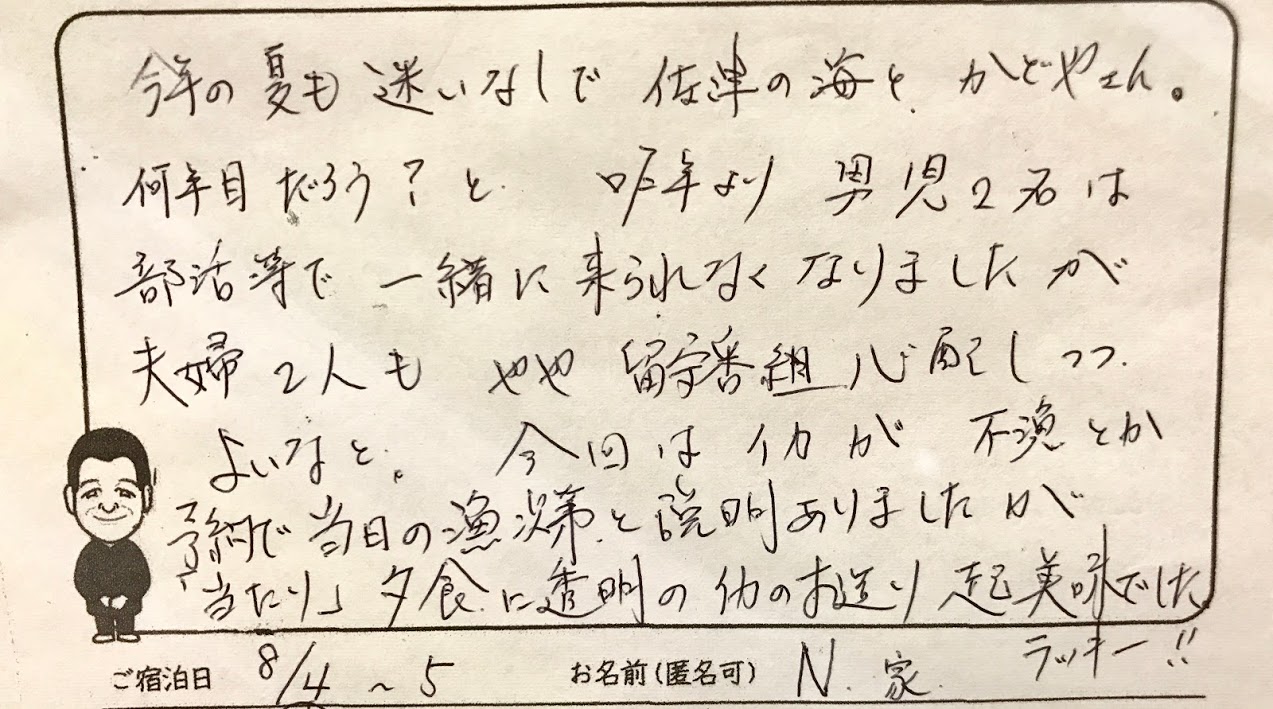 今年の夏も 迷いなしで 佐津の海と かどやさん。
何年目だろう？と 昨年より 男児2名は
部活等で 一緒に 来られなく なりましたが
夫婦2人も やや 留守番組 心配しつつ
よいなと。 今回は イカが 不漁とか
予約で 当日の漁次第と説明ありましたが
「当たり」夕食に透明のイカのお造り 超美味でした
ラッキー!!
ご宿泊日 8/4～5 お名前（匿名可） N.家.